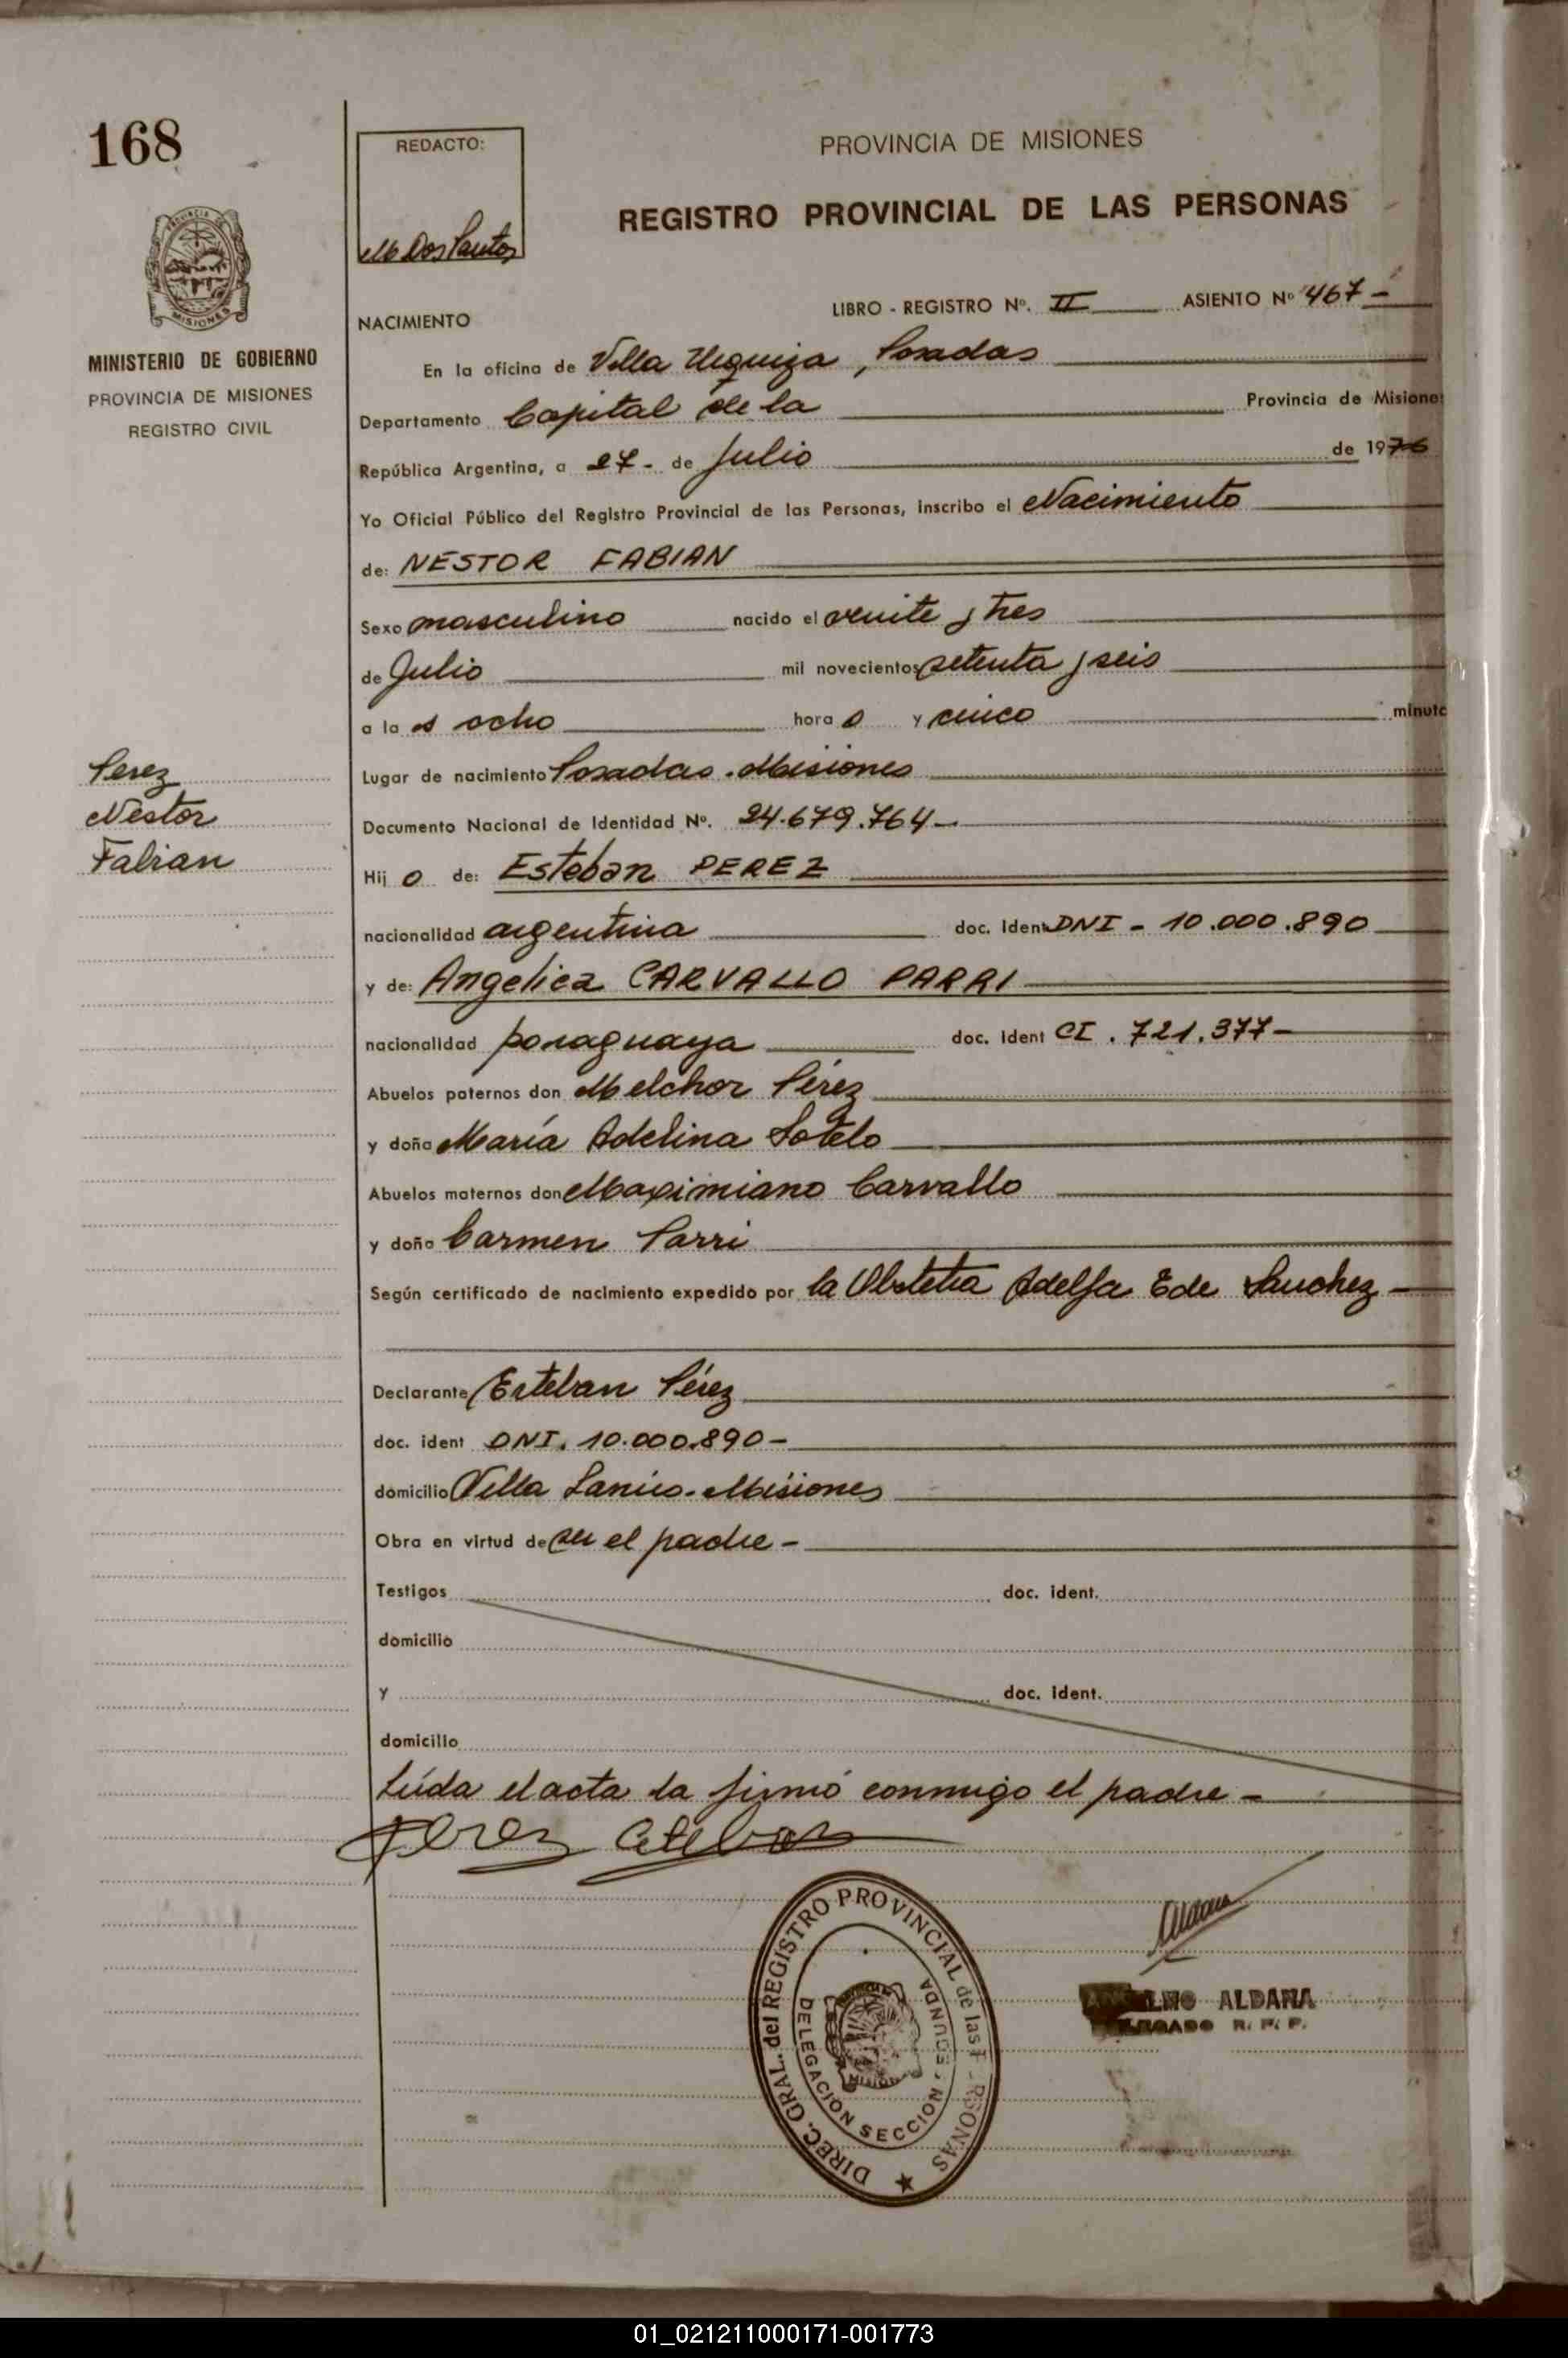 168
REDACTO:
M Dos Santos
PROVINCIA DE MISIONES
REGISTRO PROVINCIAL DE LAS PERSONAS
MISIONES
MINISTERIO DE GOBIERNO
PROVINCIA DE MISIONES
REGISTRO CIVIL
NACIMIENTO
LIBRO - REGISTRO Nº. II ASIENTO Nº 467 -
En la oficina de Villa Urquiza, Posadas
Departamento Capital de la Provincia de Misione
República Argentina, a 27 - de Julio de 1976
Yo Oficial Público del Registro Provincial de las Personas, inscribo el Nacimiento
de: NESTOR FABIAN
Sexo masculino nacido el veinte y tres
de Julio mil novecientos setenta y seis
a la s ocho hora s y cinco minuto
Perez
Nestor
Fabian
Lugar de nacimiento Posadas - Misiones
Documento Nacional de Identidad Nº. 24.679.764 -
Hij o de: Esteban PEREZ
nacionalidad argentina doc. Ident DNI - 10.000.890
y de: Angelica CARVALLO PARRI
nacionalidad paraguaya doc. Ident CI. 721.377 -
Abuelos paternos don Melchor Pérez
y doña María Adelina Sotelo
Abuelos maternos don Maximiano Carvallo
y doña Carmen Parri
Según certificado de nacimiento expedido por la Obstetra Adelfa E de Sanchez -
Declarante Esteban Pérez
doc. ident DNI. 10.000.890 -
domicilio Villa Lanús - Misiones
Obra en virtud de ser el padre -
Testigos doc. ident.
domicilio
y doc. ident.
domicilio
Leída el acta la firmó conmigo el padre -
Perez Esteban
Aldana
DIREC. GRAL. del REGISTRO PROVINCIAL de las PERSONAS
DELEGACION SECCION SEGUNDA
MISIONES
ALDANA
R. P. P.
01_021211000171-001773